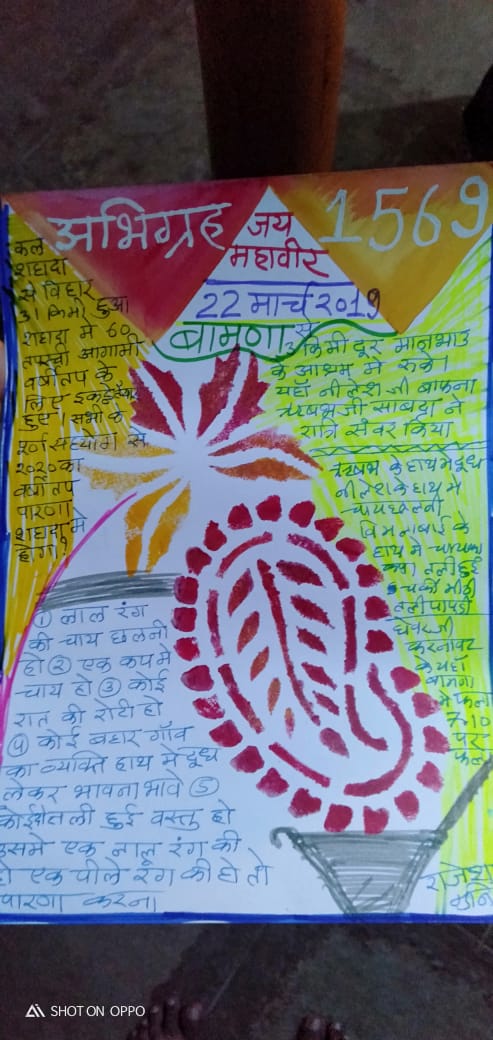 अभिग्रह
1569
जय
महावीर
22 मार्च २०19
बामणा से
कल
शहादा
से विहार
31 किमी हुआ
शहादा मे 60
तपस्वी आगामी
वर्षीतप के
लिए
हुए। सभी के
पूर्ण सहयोग से
२०२० का
वर्षीतप
पारणा
शहादा मे
होगा?
3 किमी दूर मानभाउ
के आश्रम मे रुके।
यहाँ नीलेश जी बाफना
ऋषभ जी साबद्रा ने
रात्रि संवर किया
ऋषभ के हाथ मे दूध
नीलेश के हाथ मे
चाय छलनी
विमनाबाई के
हाथ मे चाय का
कप। तली हुई
चरकी मीठी
तली पापडी
घेवरजी
करनावट
के यहाँ
बामणा
मे फला
7-10
पर
फला
① लाल रंग
की चाय छलनी
हो ② एक कप मे
चाय हो ③ कोई
रात की रोटी हो
④ कोई बहार गाँव
का व्यक्ति हाथ मे दूध
लेकर भावना भावे ⑤
कोई तली हुई वस्तु हो
उसमे एक लाल रंग की
हो एक पीले रंग की हो तो
पारणा करना
राजेश
मुनि
SHOT ON OPPO